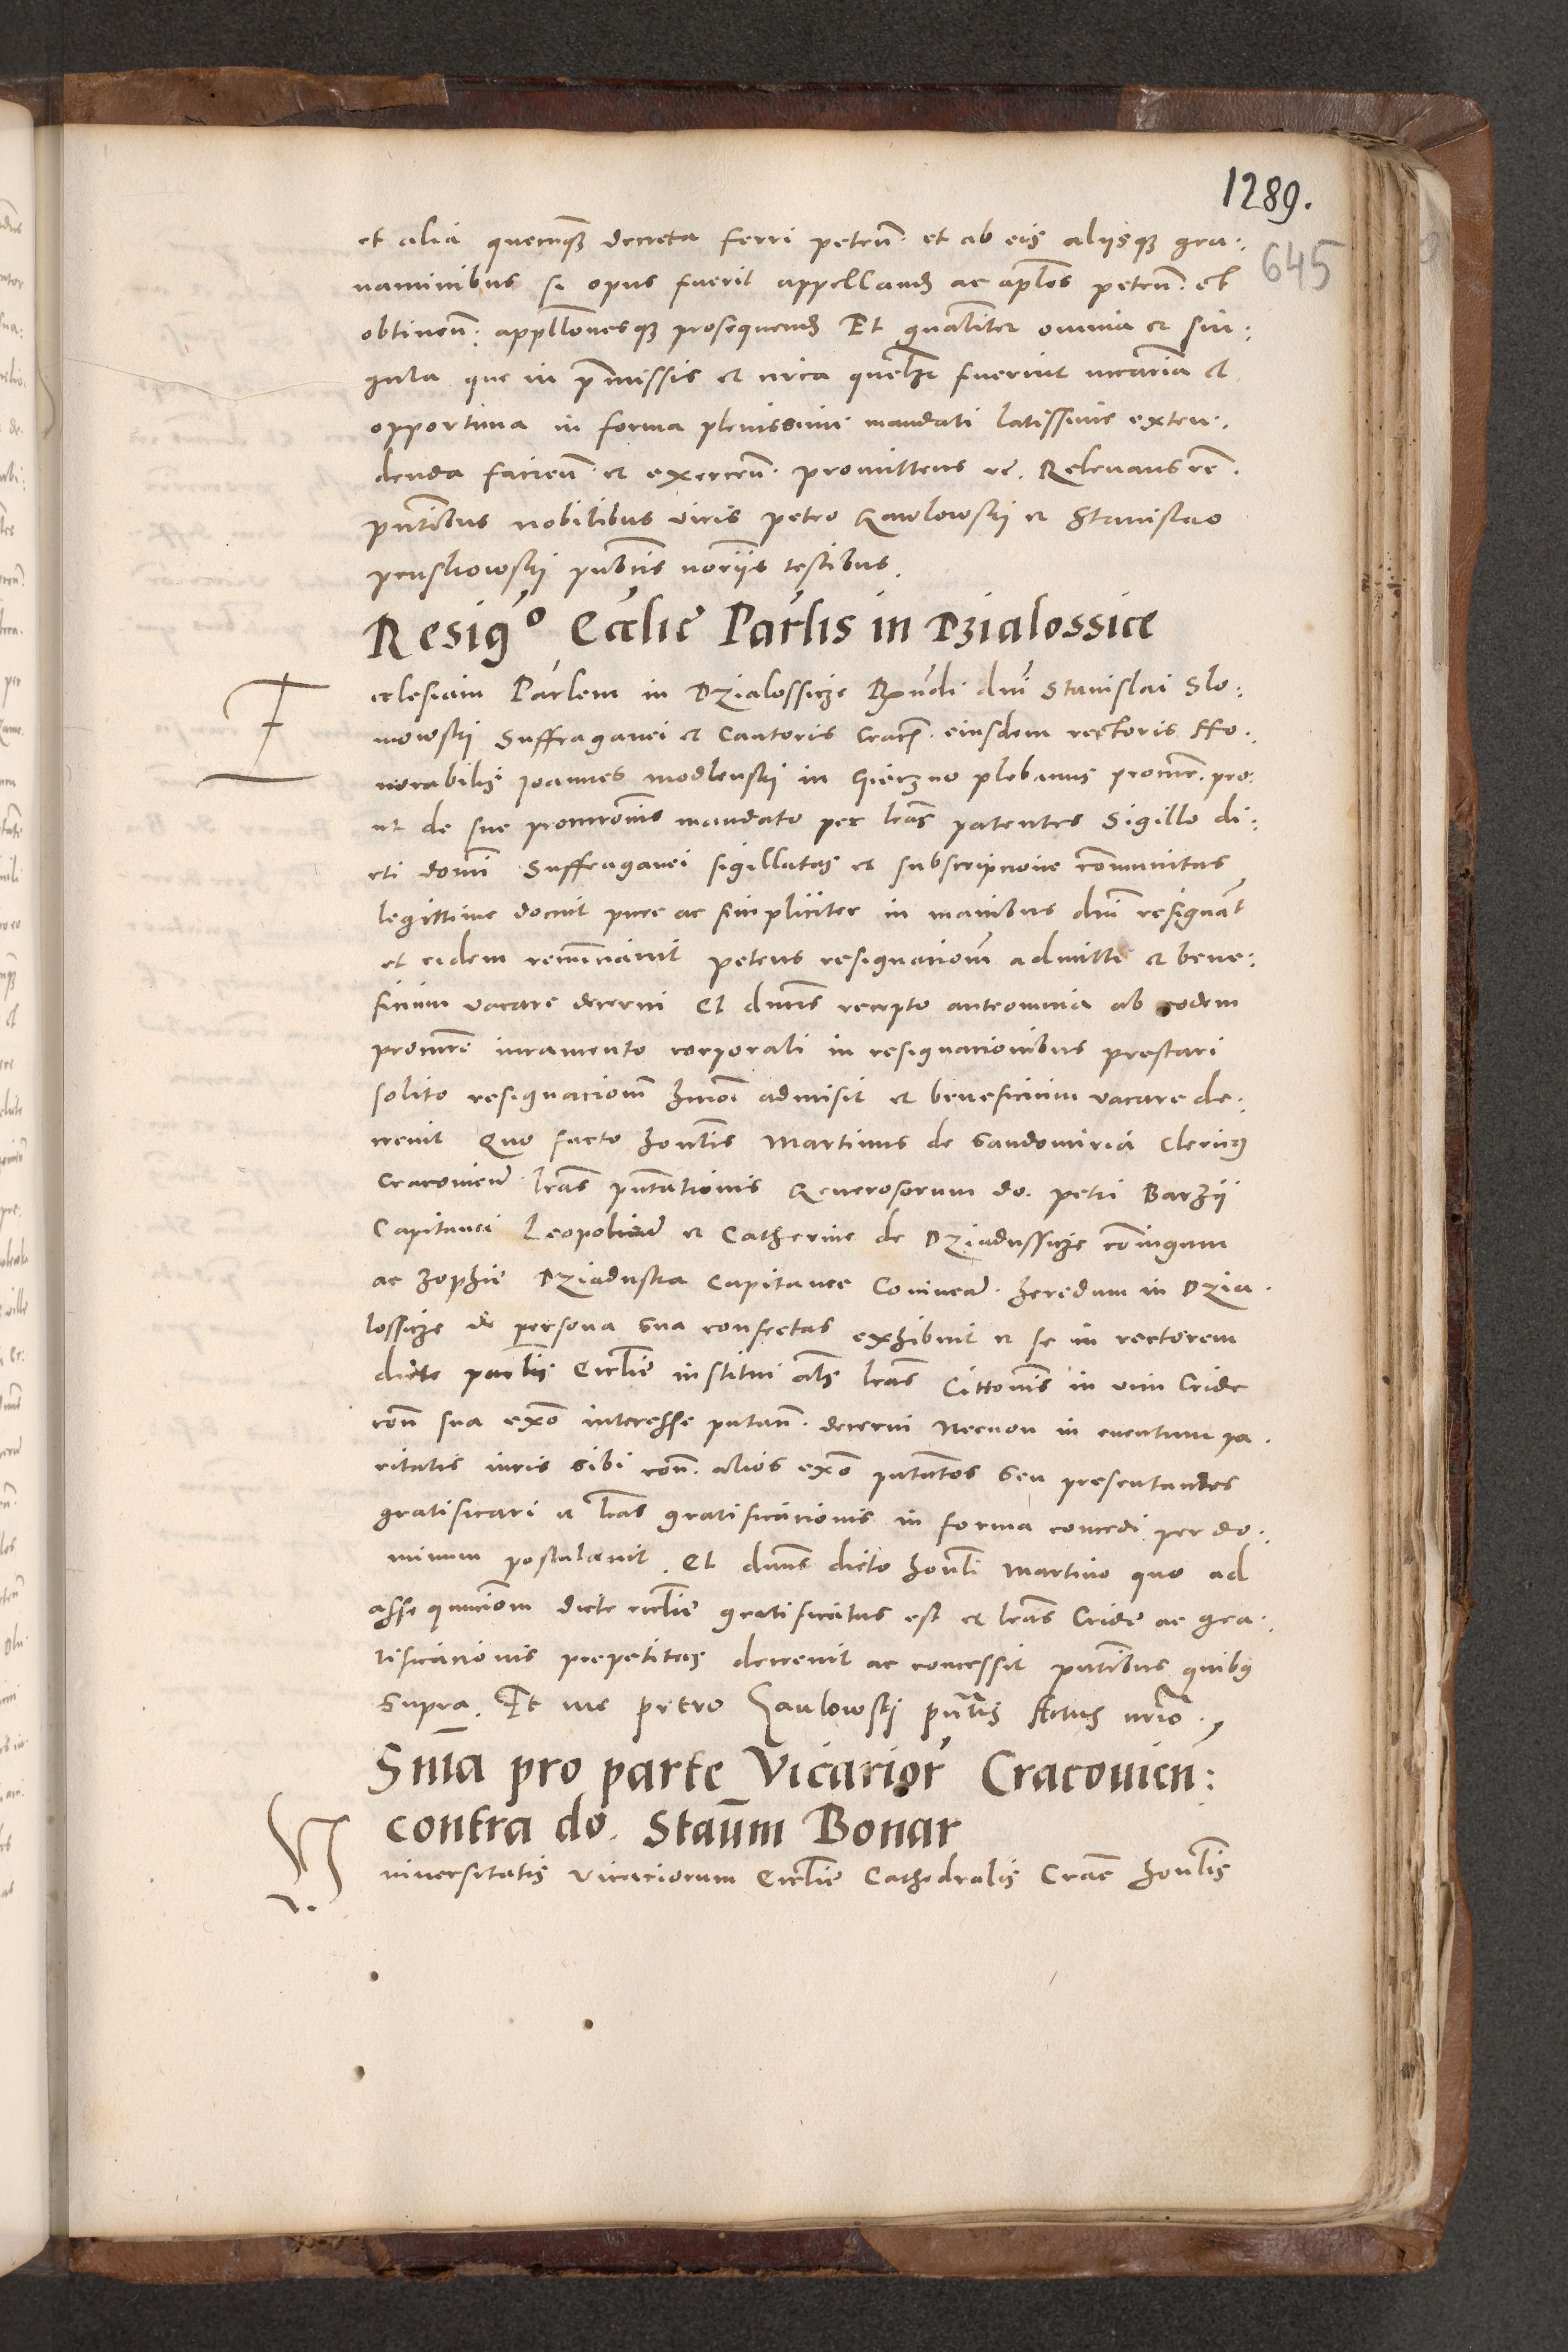 1289.
645
et alia quecunqʒ decreta ferri peteñ. et ab eis alijsqʒ gra:
uaminibus si opus fuerit appellandʒ ac apłos peteñ. et
obtineñ: appłłonesqʒ prosequendʒ Et gnałiter omnia et sin:
gula que in p̃missis et circa quełʒ fuerint nēcaria et
opportuna in forma plenissimi mandati latissime exten:
denda facieñ. et exerceñ. promittens rē. Releuans rē.
pñtibus nobilibus viris petro Gawlowskij et Stanislao
prushowskij publicis norijs testibus.
Resigᵒ Ecclie Parlis in Dzialossice
I
ecclesiam Parlem in Dzialossicze Rx̃ndi dñi Stanislai Slo:
mowskij Suffraganei et Cantoris Cracʒ. eiusdem rectoris Ho:
norabilis Joannes modlenskij in Gierzno plebanus procur̃. pro:
ut de sue procuronis mandato per l̃ras patentes Sigillo di:
cti domi Suffraganei sigillatas et subscripcione com̃unitas
legittime docuit pure ac simpliciter in manibus dñi resignat
et eidem renunciauit petens resignacionem admitti et bene:
ficium vacare decerni Et dñus recepto anteomnia ab eodem
procur̃e iuramento corporali in resignacionibus prestari
solito resignacionem hm̃oi admisit et beneficium vacare de:
creuit Quo facto honłis Martinus de Sandomiria Clericus
Cracouieñ. l̃ras pñtationis Generosorum do. petri Barzij
Capitanei Leopolieñ et Catherine de Dziadussicze coniugum
ac Zophie Dziaduska Capitanee Conineñ. heredum in Dzia:
lossicze de persona sua confectas exhibuit et se in rectorem
dicte parłis Ecclie institui als l̃ras Cittonis in vim Cride
coñ sua exõ interesse putañ. decerni Necnon in euentum pa:
ritatis iuris sibi coñ. alios exõ pñtatos seu presentandos
gratificari et l̃ras gratificacionis in forma concedi per do:
minum postulauit. Et dñus dicto honłi Martino quo ad
assequucionem dicte ecclie gratificatus est et l̃ras Cride ac gra:
tificacionis prepetitas decreuit ac concessit pñtibus quibus
supra. Et me petro Gawlowskij pñtis Actus nrio.
Sñia pro parte Vicarior̃ Cracouien:
contra do. Stañm Bonar
V
niuersitatis Vicariorum Ecclie Cathedralis Crac̃ honłis